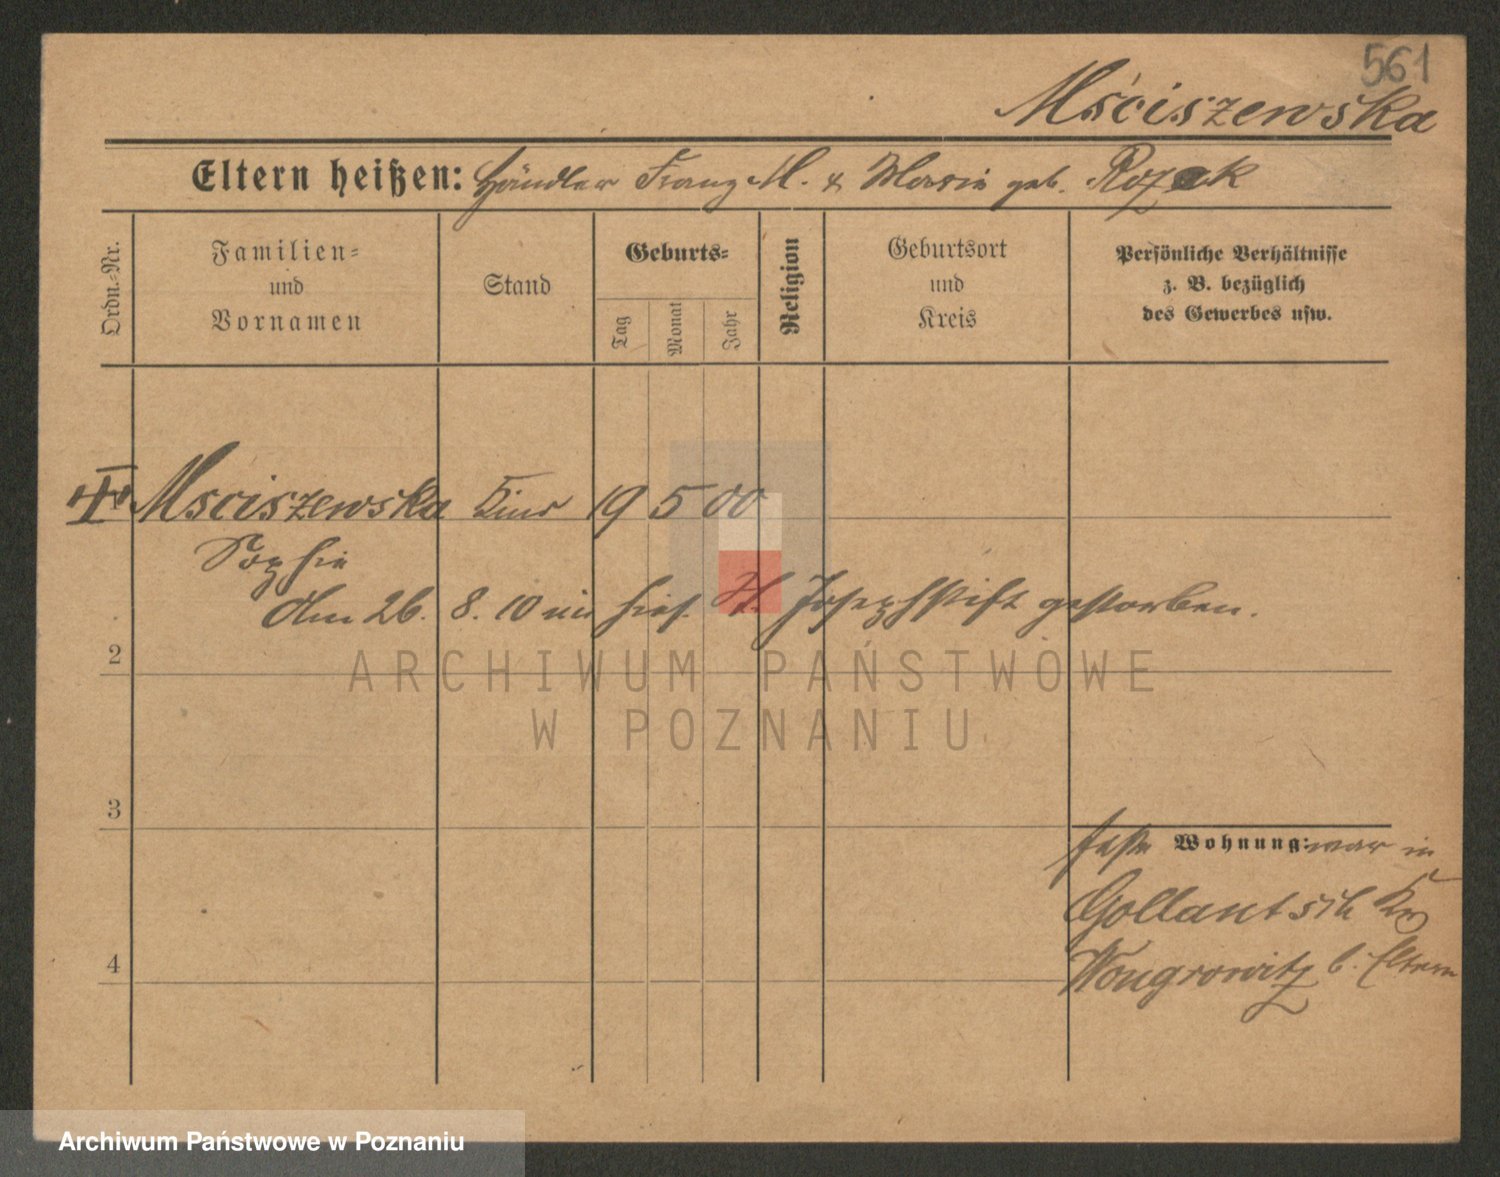 561
Mściszewska
Eltern heißen: Händler Franz M. & Marie geb.
Ordn.-Nr.
Familien-
und
Vornamen
Stand
Geburts-
Tag
Monat
Jahr
Religion
Geburtsort
und
Kreis
Persönliche Verhältnisse
z. B. bezüglich
des Gewerbes usw.
Msciszewska Kind 19 5 00
Sophie
Am 26. 8. 10 im hies. St. Josephstift gestorben.
2
ARCHIWUM PAŃSTWOWE
W POZNANIU
3
feste Wohnung: war in
Gollantsch Kr
4
Wongrowitz b. Eltern
Archiwum Państwowe w Poznaniu